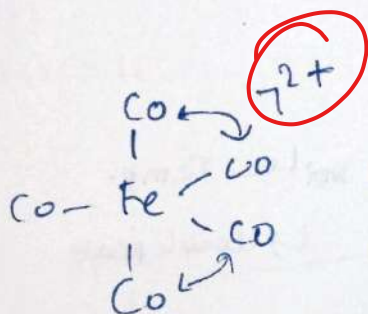 7 2+
CO
CO
CO - Fe
CO
CO